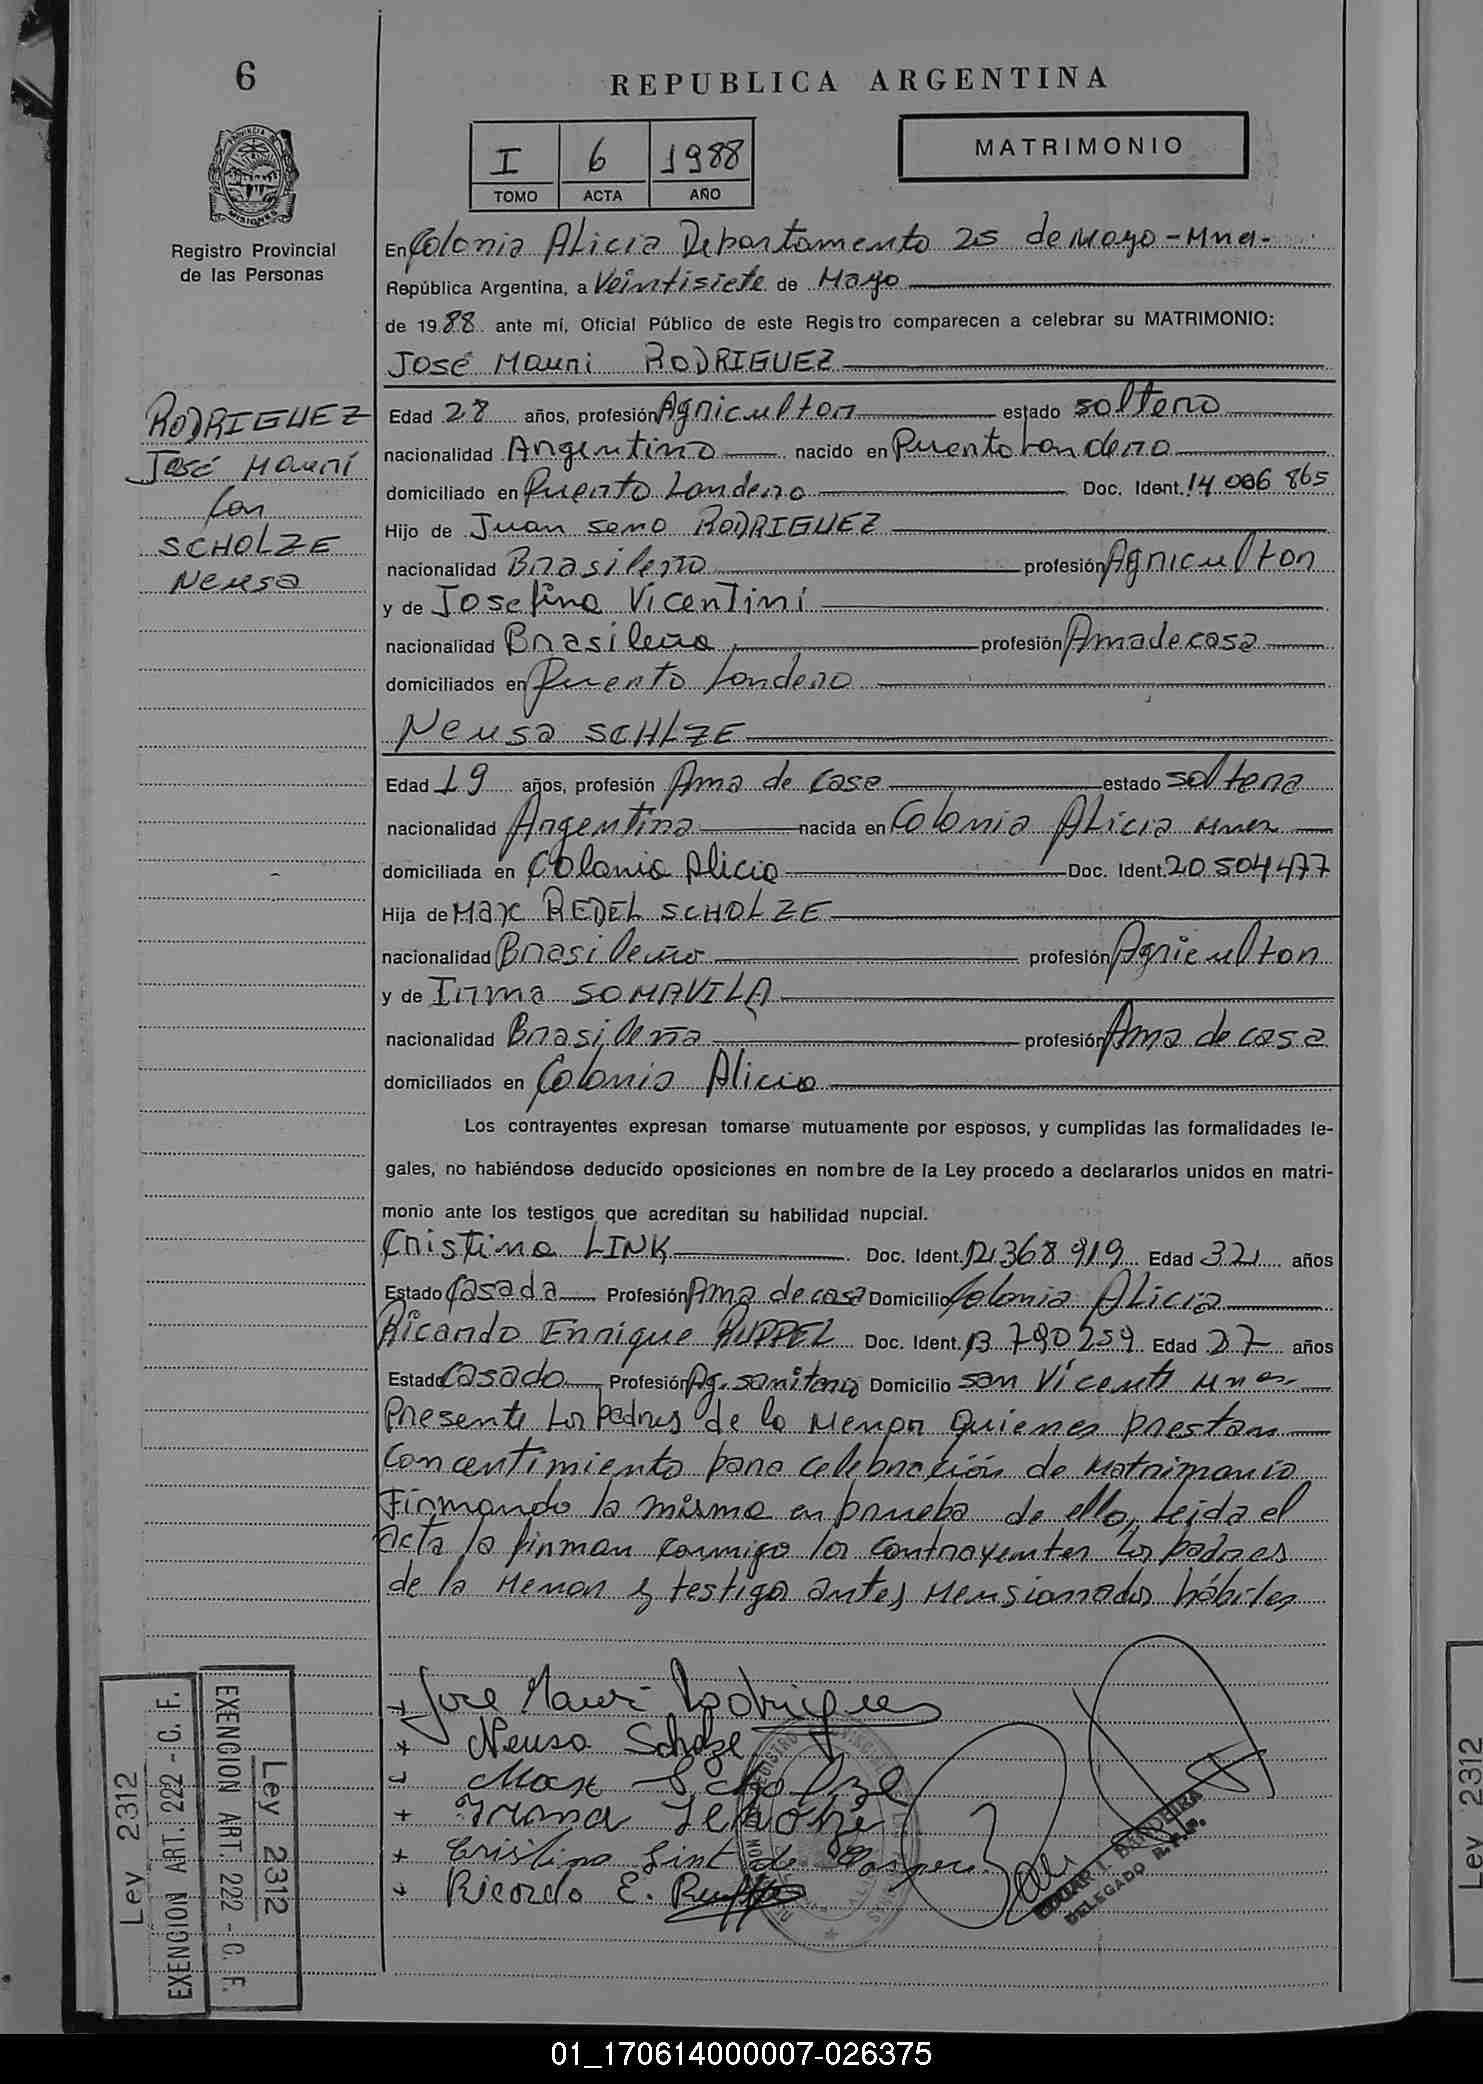 6
REPUBLICA ARGENTINA
I 6 1988
TOMO ACTA AÑO
MATRIMONIO
PROVINCIA DE
MISIONES
Registro Provincial
de las Personas
En Colonia Alicia Departamento 25 de Mayo - Mnes.
República Argentina, a Veintisiete de Mayo
de 1988 ante mí, Oficial Público de este Registro comparecen a celebrar su MATRIMONIO:
José Mauri RODRIGUEZ
RODRIGUEZ
José Mauri
Con
SCHOLZE
Neusa
Edad 28 años, profesión Agricultor estado soltero
nacionalidad Argentino nacido en Puerto Londero
domiciliado en Puerto Londero Doc. Ident. 14 006 865
Hijo de Juan seno RODRIGUEZ
nacionalidad Brasileño profesión Agricultor
y de Josefina Vicentini
nacionalidad Brasileña profesión Ama de casa
domiciliados en Puerto Londero
Neusa SCHLZE
Edad 19 años, profesión Ama de Casa estado soltera
nacionalidad Argentina nacida en Colonia Alicia Mnes
domiciliada en Colonia Alicia Doc. Ident. 20 504 477
Hija de Max REDEL SCHOLZE
nacionalidad Brasileño profesión Agricultor
y de Irma SOMAVILA
nacionalidad Brasileña profesión Ama de casa
domiciliados en Colonia Alicia
Los contrayentes expresan tomarse mutuamente por esposos, y cumplidas las formalidades le-
gales, no habiéndose deducido oposiciones en nombre de la Ley procedo a declararlos unidos en matri-
monio ante los testigos que acreditan su habilidad nupcial.
Cristina LINK Doc. Ident. 12 368 919 Edad 32 años
Estado Casada Profesión Ama de casa Domicilio Colonia Alicia
Ricardo Enrique RUPPEL Doc. Ident. 13 790 259 Edad 27 años
Estado Casado Profesión Ag. sanitario Domicilio San Vicente Mnes
Presente Los padres de la Menor quienes prestan
Concentimiento para celebración de Matrimonio
Firmando la misma en prueba de ello, Leida el
acta la firman conmigo los contrayentes Los padres
de la Menor y testigos antes Mensionados hábiles
Jose Mauri Rodrigues
Neusa Scholze
Max Scholze
Irma Scholze
Cristina Lint de
Ricardo E. Ruppel
EDUAR I. BANDEIRA
DELEGADO R.P.P.
Ley 2312
EXENCION ART. 222 - C. F.
Ley 2312
EXENCION ART. 222 - C. F.
Ley 2312
01_170614000007-026375